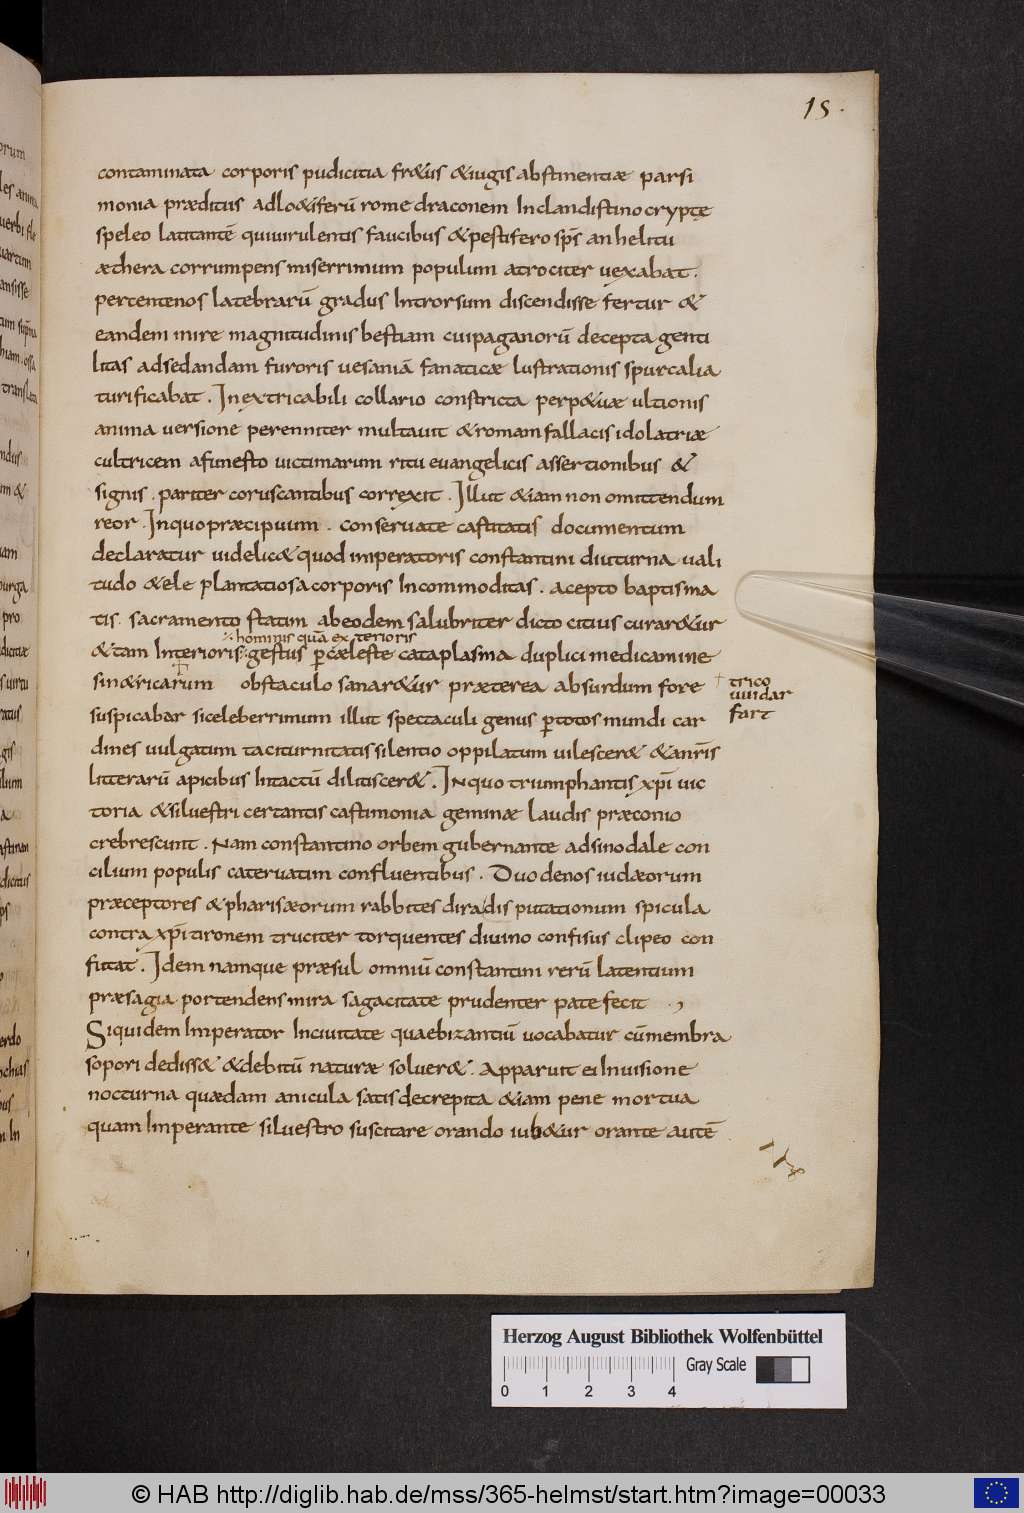 15.
contaminata corporis pudicitia fr&us &iugis abstinentiæ parsi
monia præditus adlo&iferū rome draconem Inclandistino crypte
speleo latitantē quiuirulentis faucibus &pestifero sps̄ anhelitu
æthera corrumpens miserrimum populum atrociter uexabat.
percentenos latebrarū gradus Introrsum discendisse fertur &
eandem mire magnitudinis bestiam cuipaganorū decepta genti
litas adsedandam furoris uesaniā fanaticæ lustrationis spurcalia
turificabat. Inextricabili collario constricta perp&uæ ultionis
anima uersione perenniter multauit &romam fallacis idolatriæ
cultricem afunesto uictimarum ritu euangelicis assertionibus &
signis. pariter coruscantibus correxit. Illut &iam non omittendum
reor. Inquo præcipuum. conseruate castitatis documentum
declaratur uidelic& quod imperatoris constantini diuturna uali
tudo &ele plantatiosa corporis Incommoditas. acepto baptisma
tis. sacramento statim abeodem salubriter dicto citius curar&ur
hominis quā exterioris
&tam Interioris: gestus p cæleste cataplasma duplici medicamine
sin&ricarum obstaculo sanar&ur præterea absurdum fore
trico
uuidar
fart
suspicabar siceleberrimum illut spectaculi genus ptotos mundi car
dines uulgatum taciturnitatis silentio oppilatum uilescer& &anr̄is
litterarū apicibus Intactū dilitiscer&. Inquo triumphantis xp̄i uic
toria &siluestri certantis castimonia geminæ laudis præconio
crebrescunt. Nam constantino orbem gubernante adsinodale con
cilium populis cateruatim confluentibus. Duodenos iudæorum
præceptores &pharisæorum rabbites diradis putationum spicula
contra xp̄i tironem truciter torquentes diuino confisus clipeo con
futat. Idem namque præsul omniū constantini rerū latentium
præsagia portendens mira sagacitate prudenter patefecit.,
Siquidem Imperator Inciuitate quaebizantiū uocabatur cūmembra
sopori dediss& &debitū naturæ soluer&. Apparuit ei Inuisione
nocturna quædam anicula satis decrepita &iam pene mortua
quam Imperante siluestro suscitare orando iub&ur orante autē
Herzog August Bibliothek Wolfenbüttel
Gray Scale
0 1 2 3 4
© HAB http://diglib.hab.de/mss/365-helmst/start.htm?image=00033